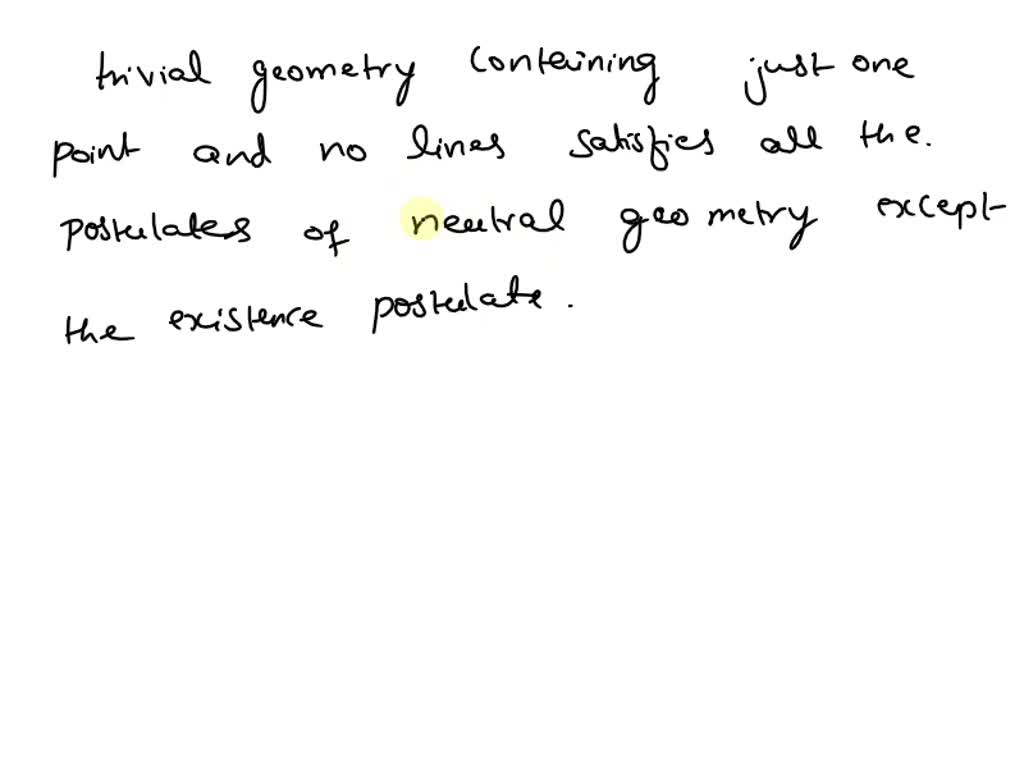 trivial geometry containing just one
point and no lines satisfies all the.
postulates of neutral geometry except
the existence postulate.